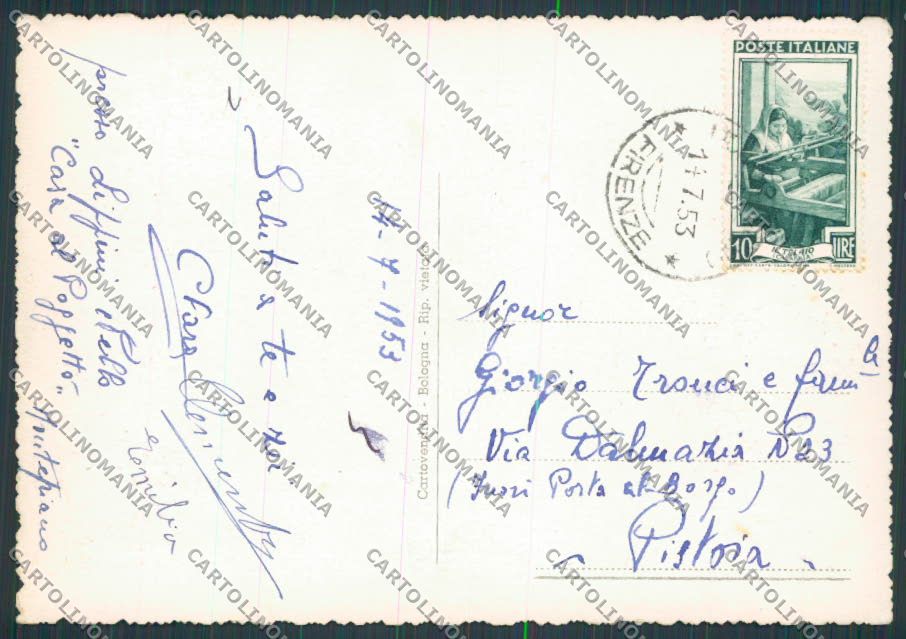 presso
"Casa al Poggetto" Montepiano
Saluti a te e zia
Clara
Emilia
14-7-1953
Cartovendita - Bologna - Rip. vietata
POSTE ITALIANE
10 LIRE
IL TELAIO
FIRENZE
14.7.53
Signor
Giorgio Tronci e famla
Via Dalmazia N 23
(Fuori Porta al Borgo)
Pistoia
CARTOLINOMANIA